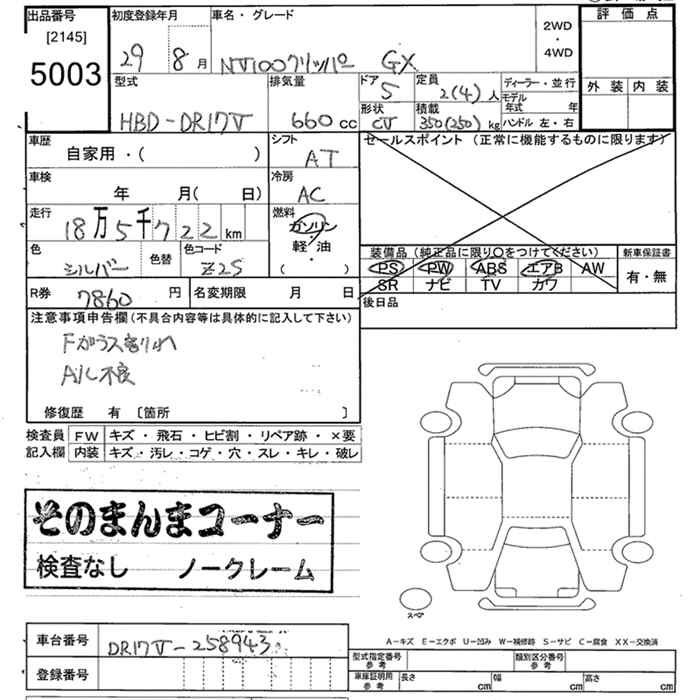 出品番号
[2145]
5003
初度登録年月
29 8月
車名・グレード
NV100クリッパー GX
2WD
・
4WD
評価点
外装 内装
型式
HBD-DR17V
排気量
660cc
ドア
5
形状
CV
定員
2(4)人
積載
350(250)kg
ディーラー・並行
モデル
年式 年
ハンドル 左・右
車歴
自家用・( )
シフト
AT
車検
年 月( 日)
冷房
AC
走行
18万5千722km
燃料
ガソリン
軽・油
( )
色
シルバー
色替
色コード
Z2S
R券
7860円
名変期限 月 日
セールスポイント(正常に機能するものに限ります)
装備品(純正品に限り〇をつけてください)
PS PW ABS エアB AW
SR ナビ TV カワ
新車保証書
有・無
後日品
注意事項申告欄(不具合内容等は具体的に記入して下さい)
Fガラス割れ
A/C不良
修復歴 有 [箇所 ]
検査員
記入欄
FW キズ・飛石・ヒビ割・リペア跡・×要
内装 キズ・汚レ・コゲ・穴・スレ・キレ・破レ
そのまんまコーナー
検査なし ノークレーム
スペア
A-キズ E-エクボ U-凹み W-補修跡 S-サビ C-腐食 XX-交換済
車台番号
DR17V-258943
登録番号
型式指定番号
参考
類別区分番号
参考
車庫証明用
参考
長さ cm
幅 cm
高さ cm